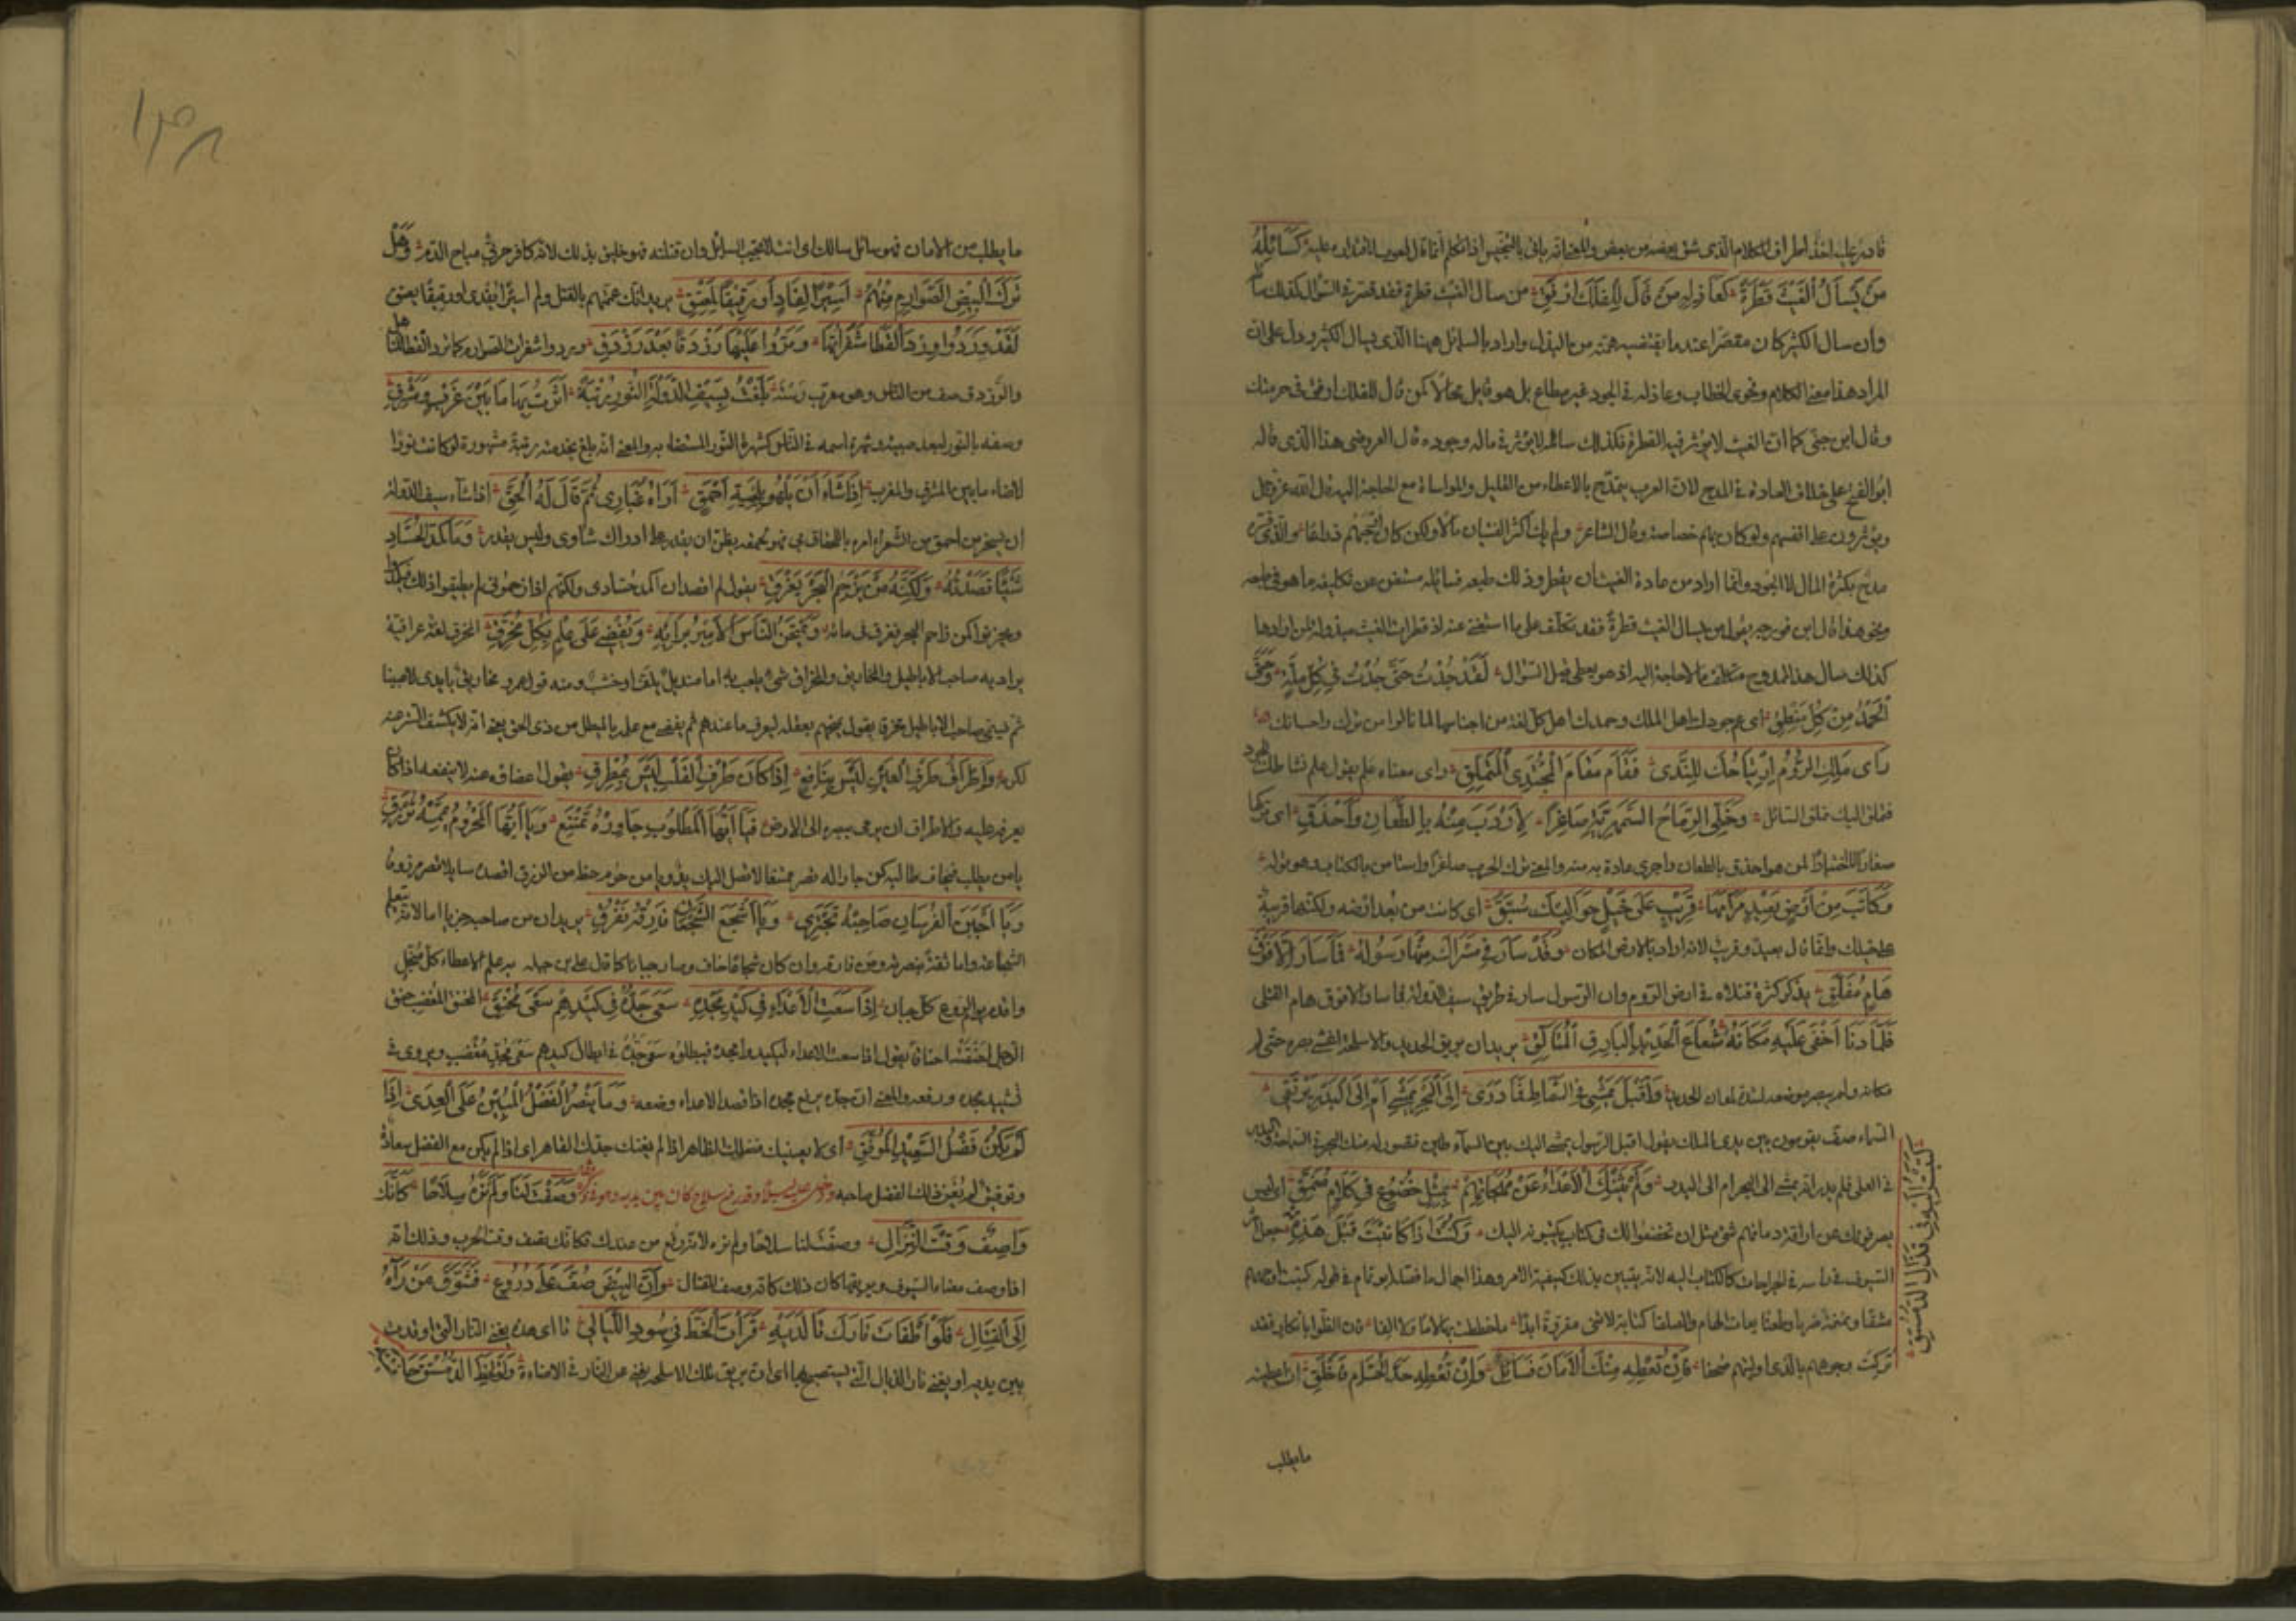 قادر على اخذ اطراف الكلام الذى شق بعضه من بعض والمعنى انه ياتى بالتجنيس اذا تكلم كَسَائِلِهِ
مَنْ يَسْأَلُ الْغَيْثَ قَطْرَةً كَعَاذِلِهِ مَنْ قَالَ لِلْفَلَكِ ارْفُقِ من سال الغيث قطرة فقد قصر فى السؤال كذلك سائله
وان سال الكثير كان مقصرا عند ما يقتضيه همته من البذل واراد بالسائل ههنا الذى يسال الكثير ودل على ان
المراد هذا معنى الكلام وفحوى الخطاب وعاذله فى الجود غير مطاع بل هو قايل محالا كمن قال للفلك ارفق فى حركتك
وقال ابن جنى كما ان الغيث لا يؤثر فيه القطرة فكذلك سائله لا يؤثر فى ماله وجوده قال العروضى هذا الذى قاله
ابو الفتح على خلاف العادة فى المدح لان العرب يتمدح بالاعطاء من القليل والمواساة مع الحاجة اليه قال الله عز وجل
ويؤثرون على انفسهم ولو كان بهم خصاصة وقال الشاعر ولم يك اكثر الفتيان مالا ولكن كان ارحبهم ذراعا والذى فسره
مدح بكثرة المال لا الجود وانما اراد من عادة الغيث ان يقطر وذلك طبعه فسائله مستغن عن تكليفه ما هو فى طبعه
ونحو هذا قال ابن فورجه يقول من يسال الغيث قطرة فقد تكلف على ما استغنى عنه اذ قطرات الغيث مبذولة لمن ارادها
كذلك سال هذا الممدوح متكلف ما لا حاجة اليه اذ هو يعطى قبل السؤال لَقَدْ جُدْتَ حَتَّى جُدْتَ فِي كُلِّ مِلَّةٍ وَحَتَّى
أَتَاكَ الْحَمْدُ مِنْ كُلِّ مَنْطِقِ اى عم جودك اهل الملل وحمدك اهل كل لغة من اجناسهم لما نالوا من برك واحسانك
رَأَى مَلِكُ الرُّومِ ارْتِيَاحَكَ لِلنَّدَى فَقَامَ مَقَامَ الْمُجْتَدِي الْمُتَمَلِّقِ راى معناه علم يقول علم نشاطك للجود
فتملق اليك تملق السائل وَخَلَّى الرِّمَاحَ السَّمْهَرِيَّةَ صَاغِرًا لِأَدْرَبَ مِنْهُ بِالطِّعَانِ وَأَحْذَقِ اى تركها
صغارا لا اختيارا لمن هو احذق بالطعان واجرى عادة به منه والمعنى ترك الحرب صاغرا واستامن بالكتاب وهو قوله
وَكَاتَبَ مِنْ أَرْضٍ بَعِيدٍ مَرَامُهَا قَرِيبٍ عَلَى خَيْلٍ حَوَالَيْكَ سُبَّقِ اى كاتبك من بعد ارضه ولكنها قريبة
على خيلك وانما قال بعيد وقريب لانه اراد بالارض المكان وَقَدْ سَارَ فِي مَسْرَاكَ مِنْهَا رَسُولُهُ فَمَا سَارَ إِلَّا فَوْقَ
هَامٍ مُفَلَّقِ يذكر كثرة قتلاه فى ارض الروم وان الرسول سار فى طريق سيف الدولة فما سار الا فوق هام القتلى
فَلَمَّا دَنَا أَخْفَى عَلَيْهِ مَكَانَهُ شُعَاعُ الْحَدِيدِ الْبَارِقِ الْمُتَأَلِّقِ يريد ان بريق الحديد والاسلحة اغشى بصره حتى لم
مكانه ولم يبصر موضعه لشدة لمعان الحديد وَأَقْبَلَ يَمْشِي فِي السِّمَاطِ فَمَا دَرَى إِلَى الْبَحْرِ يَمْشِي أَمْ إِلَى الْبَدْرِ يَرْتَقِي
السماط صف يقومون بين يدى الملك يقول اقبل الرسول يمشى اليك بين السماطين
فى العلى فلم يدر انه يمشى الى البحر ام الى البدر وَلَمْ يَثْنِكَ الْأَعْدَاءُ عَنْ مُهَجَاتِهِمْ بِمِثْلِ خُضُوعٍ فِي كَلَامٍ مُنَمَّقِ اى ليس
يصرفونك عن اراقة دمائهم شئ مثل ان يخضعوا لك فى كتاب يكتبونه اليك وَكُنْتَ إِذَا كَاتَبْتَهُ قَبْلَ هَذِهِ
كَتَبْتَ إِلَيْهِ فِي قَذَالِ الدُّمُسْتُقِ
السيوف فى راسه فى الجراحات كالكتاب اليه لانه يتبين بذلك كيفية الامر وهذا اجمال ما فصله ابو تمام فى قوله كتبت اوجههم
مشقا ونمنمة ضربا وطعنا يقات الهام والصلفا كتابة لا تنى مقروة ابدا وما خططت بها لاما ولا الفا فان الظوا بانكار فقد
تركت وجوههم بالذى اوليتهم صحفا فَإِنْ تُعْطِهِ مِنْكَ الْأَمَانَ فَسَائِلٌ وَإِنْ تُعْطِهِ حَدَّ الْحُسَامِ فَأَخْلِقِ
ما يطلب
١٣٨
ما يطلب من الامان فهو سائل سالك اى انت لا تخيب السائل وان قتلته فهو خليق بذلك لانه كافر حربى مباح الدم وَهَلْ
تَرَكَ الْبِيضُ الصَّوَارِمُ مِنْهُمُ أَسِيرًا لِفَادٍ أَوْ رَقِيقًا لِمُعْتِقِ يريد انك عممتهم بالقتل ولم تترك اسيرا يفدى او رقيقا يعتق
لَقَدْ وَرَدُوا وِرْدَ الْقَطَا شَفَرَاتِهَا وَمَرُّوا عَلَيْهَا رَزْدَقًا بَعْدَ رَزْدَقِ وردوا شفرات الصوارم كما ترد القطا المناهل
والرزدق صف من الناس وهو معرب رسته بَلَغْتُ بِسَيْفِ الدَّوْلَةِ النُّورِ رُتْبَةً أَنَرْتُ بِهَا مَا بَيْنَ غَرْبٍ وَمَشْرِقِ
وصفه بالنور لبعد صيته وشهرة اسمه فى الناس كشهرة النور المستضاء به والمعنى انه بلغ بخدمته رتبة مشهورة لو كانت نورا
لاضاء ما بين المشرق والمغرب إِذَا شَاءَ أَنْ يَلْهُو بِلِحْيَةِ أَحْمَقٍ أَرَاهُ غُبَارِي ثُمَّ قَالَ لَهُ الْحَقِ اذا شآء سيف الدولة
ان يسخر من احمق من الشعراء امره باللحاق بى فهو لحمقه يظن ان يقدر على ادراك شاوى وليس يقدر وَمَا كَمَدُ الْحُسَّادِ
شَيْئًا قَصَدْتُهُ وَلَكِنَّهُ مَنْ يَزْحَمِ الْبَحْرَ يَغْرَقِ يقول لم اقصد ان اكمد حسادى ولكنهم اذا زاحمونى لم يطيقوا ذلك فكمدوا
وعجزوا كمن زاحم البحر فغرق فى مائه وَيَمْتَحِنُ النَّاسَ الْأَمِيرُ بِرَأْيِهِ وَيُغْضِي عَلَى عِلْمٍ بِكُلِّ مُمَخْرِقِ المخرق لغة عراقية
يراد به صاحب الاباطيل والمخاريق والمخراق شئ يلعب به اما منديل يلف او خشب ومنه قول عمرو مخاريق بايدى لاعبينا
ثم يسمى صاحب الاباطيل ممخرق يقول يمتحنهم بعقله ليعرف ما عندهم ثم يغضى مع علمه بالمبطل من ذى الحق يعنى انه لا يكشف الستر عنه
لكرمه وَإِطْرَاقُ طَرْفِ الْعَيْنِ لَيْسَ بِنَافِعٍ إِذَا كَانَ طَرْفُ الْقَلْبِ لَيْسَ بِمُطْرِقِ يقول اغضاؤه عنه لا ينفعه اذا كان
يعرفه بقلبه والاطراق ان يرمى ببصره الى الارض فَيَا أَيُّهَا الْمَطْلُوبُ جَاوِرْهُ تَمْتَنِعْ وَيَا أَيُّهَا الْمَحْرُومُ يَمِّمْهُ تُرْزَقِ
يا من يطلب فيخاف طالبه كن جارا له تصر ممتنعا لا تصل اليك يد ويا من حرم حظه من الرزق اقصده سائلا تصر مرزوقا
وَيَا أَجْبَنَ الْفُرْسَانِ صَاحِبْهُ تَجْتَرِي وَيَا أَشْجَعَ الشُّجْعَانِ فَارِقْهُ تَفْرَقِ يريد ان من صاحبه جريا اما لانه يتعلم
الشجاعة واما ثقة بنصرته ومن فارقه وان كان شجاعا خاف وصار جبانا كما قال على بن جبله به علم الاعطاء كل مبخل
واقدم يوم الروع كل جبان إِذَا سَعَتِ الْأَعْدَاءُ فِي كَيْدِ مَجْدِهِ سَعَى جَدُّهُ فِي كَيْدِهِمْ سَعْيَ مُحْنَقِ المحنق المغضب حنق
الرجل احنقته احناقا يقول اذا سعت الاعداء ليكيدوا مجده فيبطلوه سعى جده فى ابطال كيدهم سعى مجد مغضب ويروى فى
تشييد مجده ورفعه والمعنى ان جده يرفع مجده اذا قصد الاعداء وضعه وَمَا يَنْصُرُ الْفَضْلُ الْمُبِينُ عَلَى الْعِدَى إِذَا
لَمْ يَكُنْ فَضْلَ السَّعِيدِ الْمُوَفَّقِ اى لا يعينك فضلك الظاهر اذا لم يعنك جدك القاهر اى اذا لم يكن مع الفضل سعادة
وتوفيق لم يغن ذلك الفضل صاحبه ودخل عليه ليلا وقد رفع سلاح كان بين يديه وهو فى ذكره فقال وَصَفْتَ لَنَا وَلَمْ نَرَهُ سِلَاحًا كَأَنَّكَ
وَاصِفٌ وَقْتَ النِّزَالِ وصفت لنا سلاحا ولم نره لانه رفع من عندك فكانك تصف وقت الحرب وذلك انه
اذا وصف مضاء السيوف وبريقها كان ذلك كانه وصف القتال وَأَنَّ الْبَيْضَ صُفَّ عَلَى دُرُوعٍ فَشَوَّقَ مَنْ رَآهُ
إِلَى الْقِتَالِ فَلَوْ أَطْفَأْتَ نَارَكَ تَا لَدَيْهِ قَرَأْتَ الْخَطَّ فِي سُودِ اللَّيَالِي تا اى هذه يعنى النار التى اوقدت
بين يديه او يعنى نار الذبال التى يستصبح بها اى ان بريق تلك الاسلحة يغنى عن النار فى الاضاءة وَلَوْ لَحَظَ الدُّمُسْتُقُ حَافَتَيْهِ